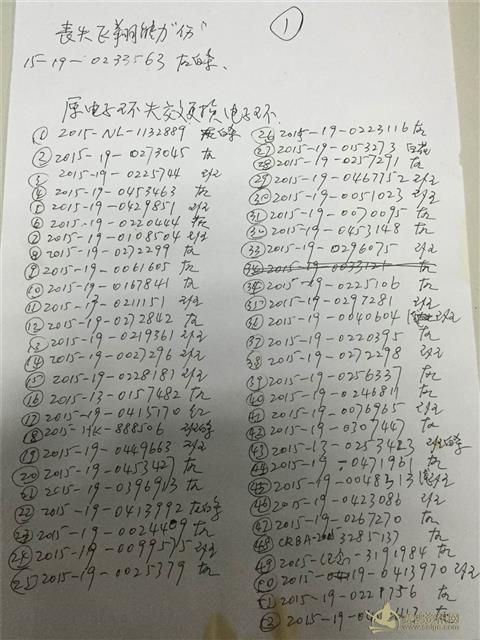 丧失飞翔能力1份
①
15-19-0233563 灰白条
原电子环失效更换电子环
① 2015-NL-1132889 灰白条
② 2015-19-0273045 灰
③ 2015-19-0225744 斑
④ 2015-19-0453463 灰
⑤ 2015-19-0429851 斑
⑥ 2015-19-0220444
⑦ 2015-19-0108504
⑧ 2015-19-0272299 灰
⑨ 2015-19-0061605 灰
⑩ 2015-19-0167841 灰
⑪ 2015-19-0211151 斑
⑫ 2015-19-0272842 灰
⑬ 2015-19-0219361 斑
⑭ 2015-19-0027296 斑
⑮ 2015-19-0228181 斑
⑯ 2015-13-0157482 灰
⑰ 2015-19-0415170 红
⑱ 2015-HK-888506
⑲ 2015-19-0449663 斑
⑳ 2015-19-0453427 灰
㉑ 2015-19-0396913 灰
㉒ 2015-19-0413992 灰白条
㉓ 2015-19-0024409 灰
㉔ 2015-19-0099575 斑
㉕ 2015-19-0025379 灰
㉖ 2015-19-0223116 灰
㉗ 2015-19-0153273 白花
㉘ 2015-19-0257291 灰
㉙ 2015-19-0467752 斑
㉚ 2015-19-0051023 斑
㉛ 2015-19-0070095 灰
㉜ 2015-19-0453148 灰
㉝ 2015-19-0296075 斑
㉞ 2015-19-0033121 灰
㉞ 2015-19-0225106 灰
㉟ 2015-19-0297281 斑
㊱ 2015-19-0040604 斑
㊲ 2015-19-0220395 灰
㊳ 2015-19-0272298 斑
㊴ 2015-19-0256337 灰
㊵ 2015-19-0246819 灰
㊶ 2015-19-0076965 斑
㊷ 2015-19-0307447 灰
㊸ 2015-13-0253423
㊹ 2015-19-0471961 灰
㊺ 2015-19-0048313
㊻ 2015-19-0423086 斑
㊼ 2015-19-0267270 灰
㊽ CRBA-2015 3285137 灰
㊾ 2015-3191984 灰
㊿ 2015-19-0413970 斑
51 2015-19-0228756 灰
2015-19-